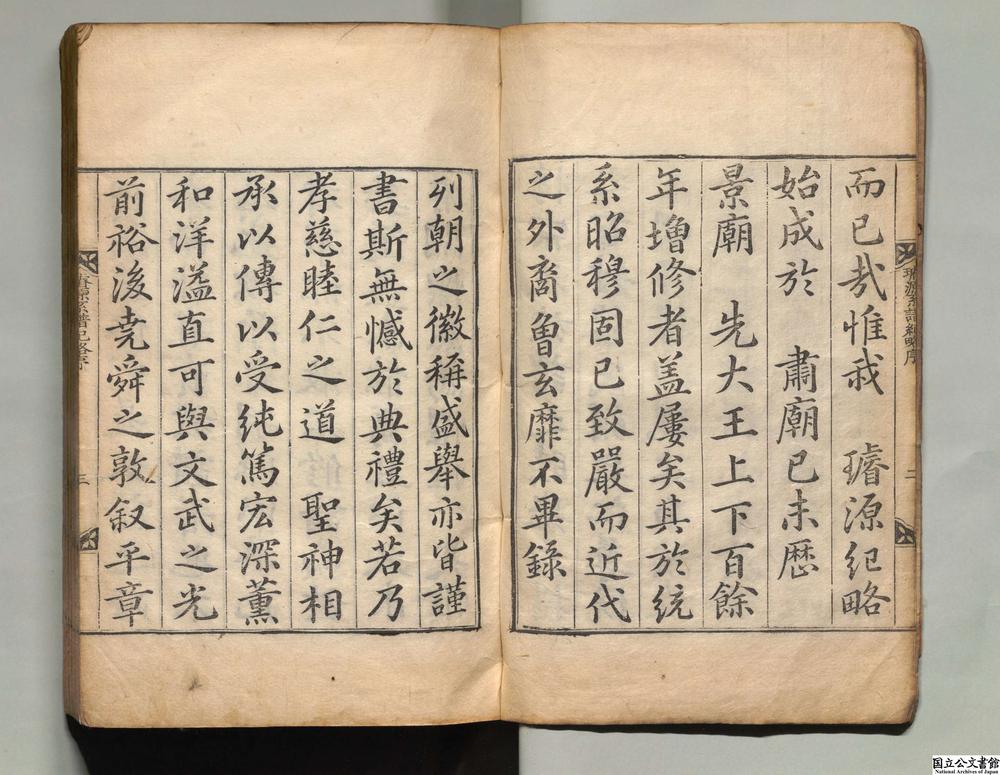 而已哉惟我　璿源紀略
始成於　肅廟己未歷
景廟　先大王上下百餘
年增修者盖屢矣其於統
系昭穆固已致嚴而近代
之外裔曾玄靡不畢錄
列朝之徽稱盛舉亦皆謹
書斯無憾於典禮矣若乃
孝慈睦仁之道　聖神相
承以傳以受純篤宏深薰
和洋溢直可與文武之光
前裕後尭舜之敦叙平章
璿源系譜紀略序
二
璿源系譜紀略序
三
国立公文書館
National Archives of Japan